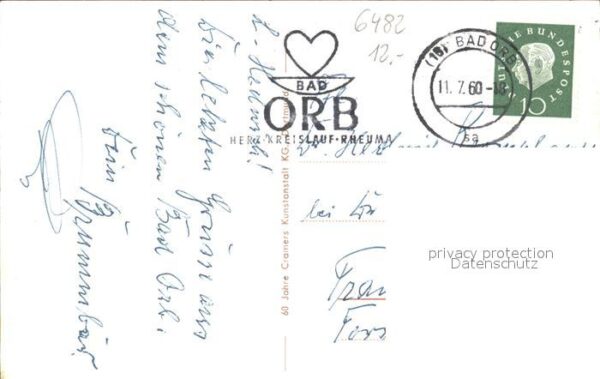 L. Helmut!
Die letzten Grüsse aus
dem schönen Bad Orb.
Dein Brummbär
60 Jahre Cramers Kunstanstalt KG, Dortmund
6482
12.-
BAD
ORB
HERZ·KREISLAUF·RHEUMA
(16) BAD ORB
11.7.60-18
sa
DEUTSCHE BUNDESPOST
10
bei
Fran
Fors
privacy protection
Datenschutz